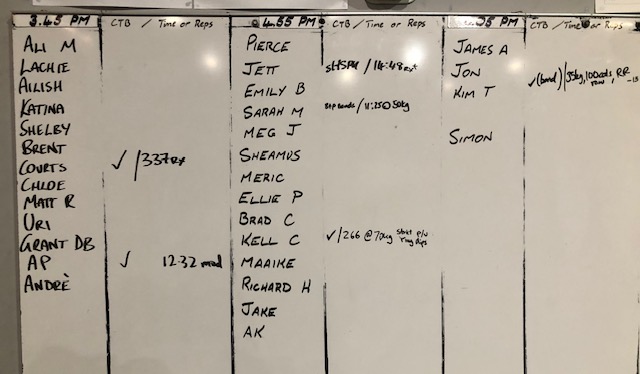 3.45 PM
CTB / Time or Reps
ALI M
LACHIE
AILISH
KATINA
SHELBY
BRENT
COURTS ✓ /337 Rx
CHLOE
MATT R
URI
GRANT DB
AP ✓ 12:32 mod
ANDRÈ
4.55 PM
CTB / Time or Reps
PIERCE
JETT sHSPU / 14:48 Rx
EMILY B
SARAH M / 11:25 @ 50kg
MEG J
SHEAMUS
MERIC
ELLIE P
BRAD C
KELL C ✓/266 @ 70kg strict p/u ring dips
MAAIKE
RICHARD H
JAKE
AK
PM
CTB / Time or Reps
JAMES A
JON
KIM T ✓ (band) / 35kg, row, RR
SIMON